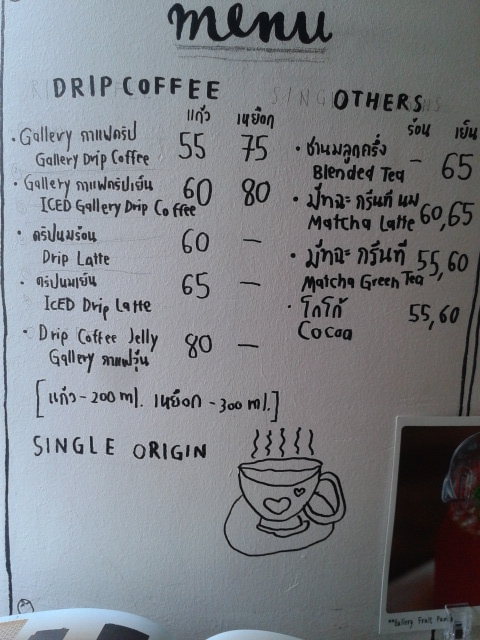 menu
DRIP COFFEE
แก้ว เหยือก
• Gallery กาแฟดริป 55 75
Gallery Drip Coffee
• Gallery กาแฟดริปเย็น 60 80
ICED Gallery Drip Coffee
• ดริปนมร้อน 60 —
Drip Latte
• ดริปนมเย็น 65 —
ICED Drip Latte
• Drip Coffee Jelly 80 —
Gallery กาแฟวุ้น
[แก้ว - 200 ml. เหยือก - 300 ml.]
SINGLE ORIGIN
OTHERS
ร้อน เย็น
• ชานมลูกครึ่ง - 65
Blended Tea
• มัทฉะ กรีนที นม 60,65
Matcha Latte
• มัทฉะ กรีนที 55,60
Matcha Green Tea
• โกโก้ 55,60
Cocoa